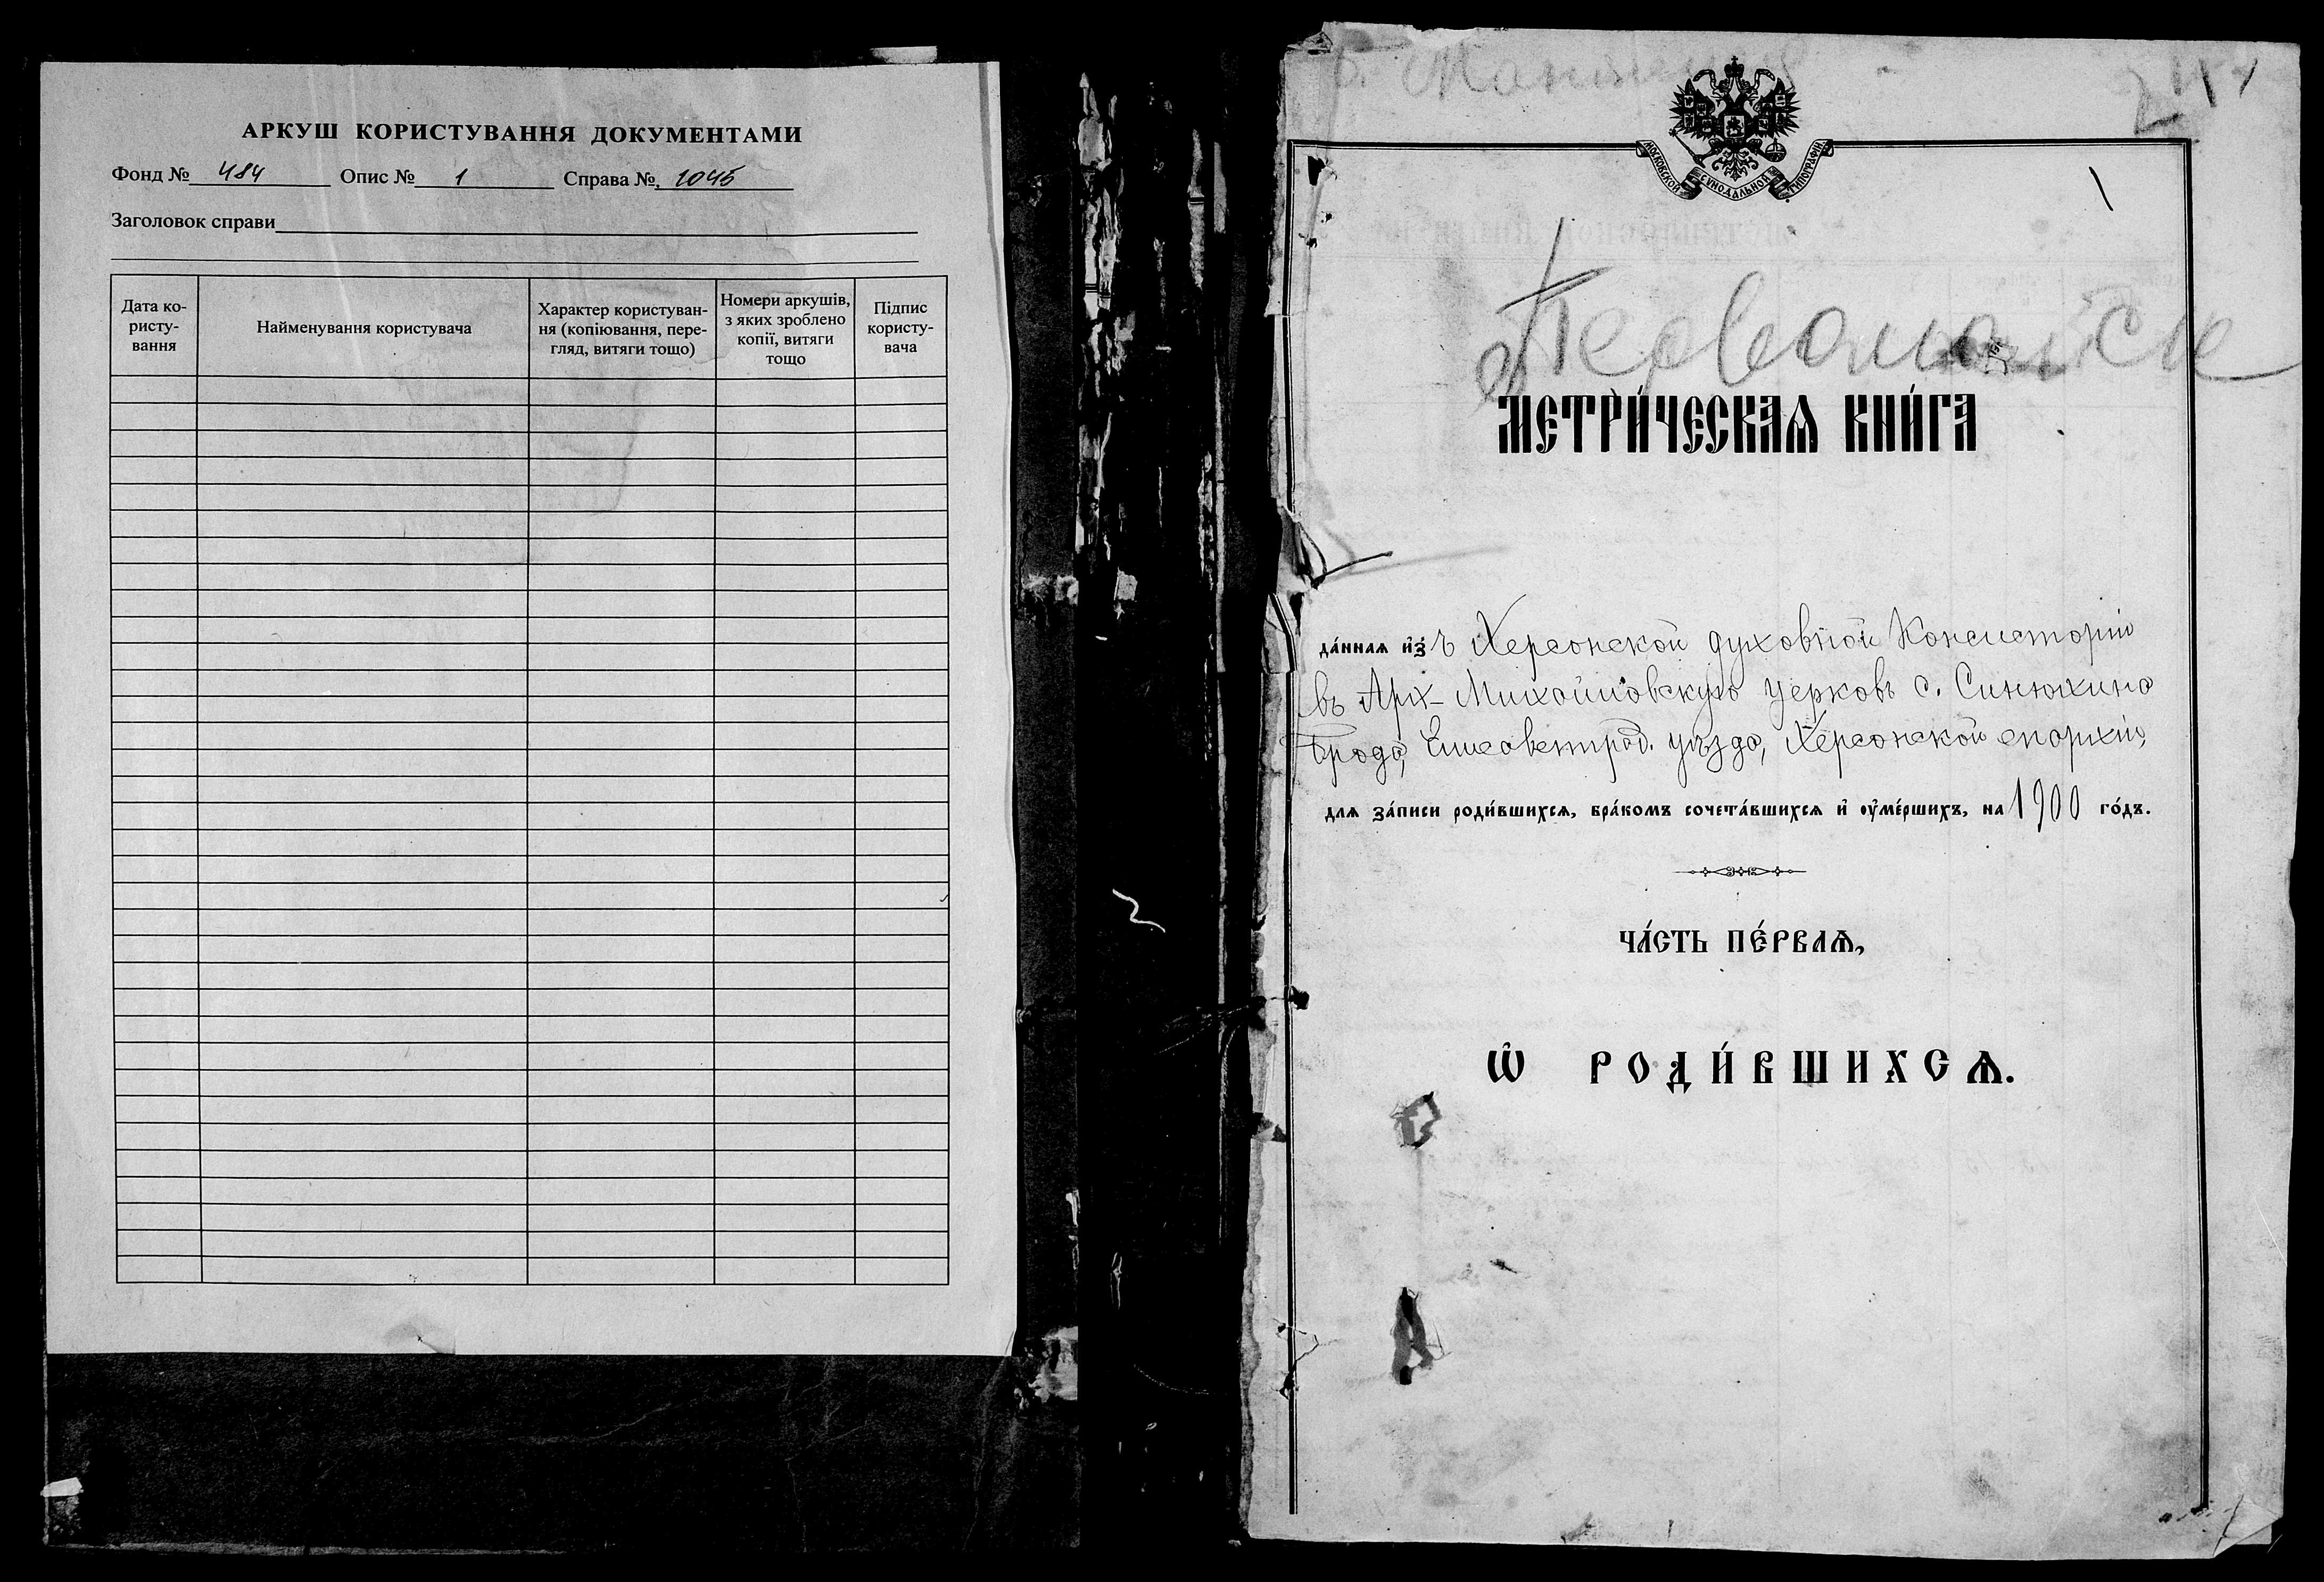 АРКУШ КОРИСТУВАННЯ ДОКУМЕНТАМИ
Фонд № 484 Опис № 1 Справа № 1045
Заголовок справи
Дата ко-
ристу-
вання
Найменування користувача
Характер користуван-
ня (копіювання, пере-
гляд, витяги тощо)
Номери аркушів,
з яких зроблено
копії, витяги
тощо
Підпис
користу-
вача
МОСКОВСКОЙ СѴНОДАЛЬНОЙ ТИПОГРАФІИ
Первомайск
МЕТРИ́ЧЕСКАѦ КНИ́ГА
да́нная и҆зъ Херсонской духовной Консисторіи
въ Арх-Михайловскую церковь с. Синюхина
Брода, Елисаветград. уѣзда, Херсонской епархіи,
для за́писи роди́вшихся, бра́комъ сочета́вшихся и҆ ᲂу҆ме́ршихъ, на 1900 го́дъ.
ЧА́СТЬ ПЕ́РВАѦ,
Ѽ РОДИ́ВШИХСѦ.